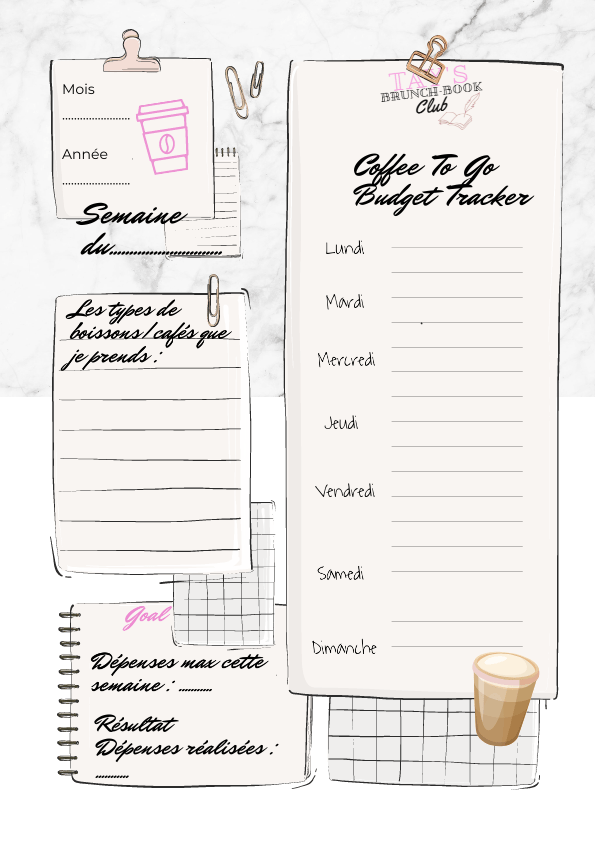 Mois
......................
Année
......................
Semaine
du.........................
Les types de
boissons/cafés que
je prends :
Goal
Dépenses max cette
semaine : ...........
Résultat
Dépenses réalisées :
...........
BRUNCH-BOOK
Club
Coffee To Go
Budget Tracker
Lundi
Mardi
Mercredi
Jeudi
Vendredi
Samedi
Dimanche